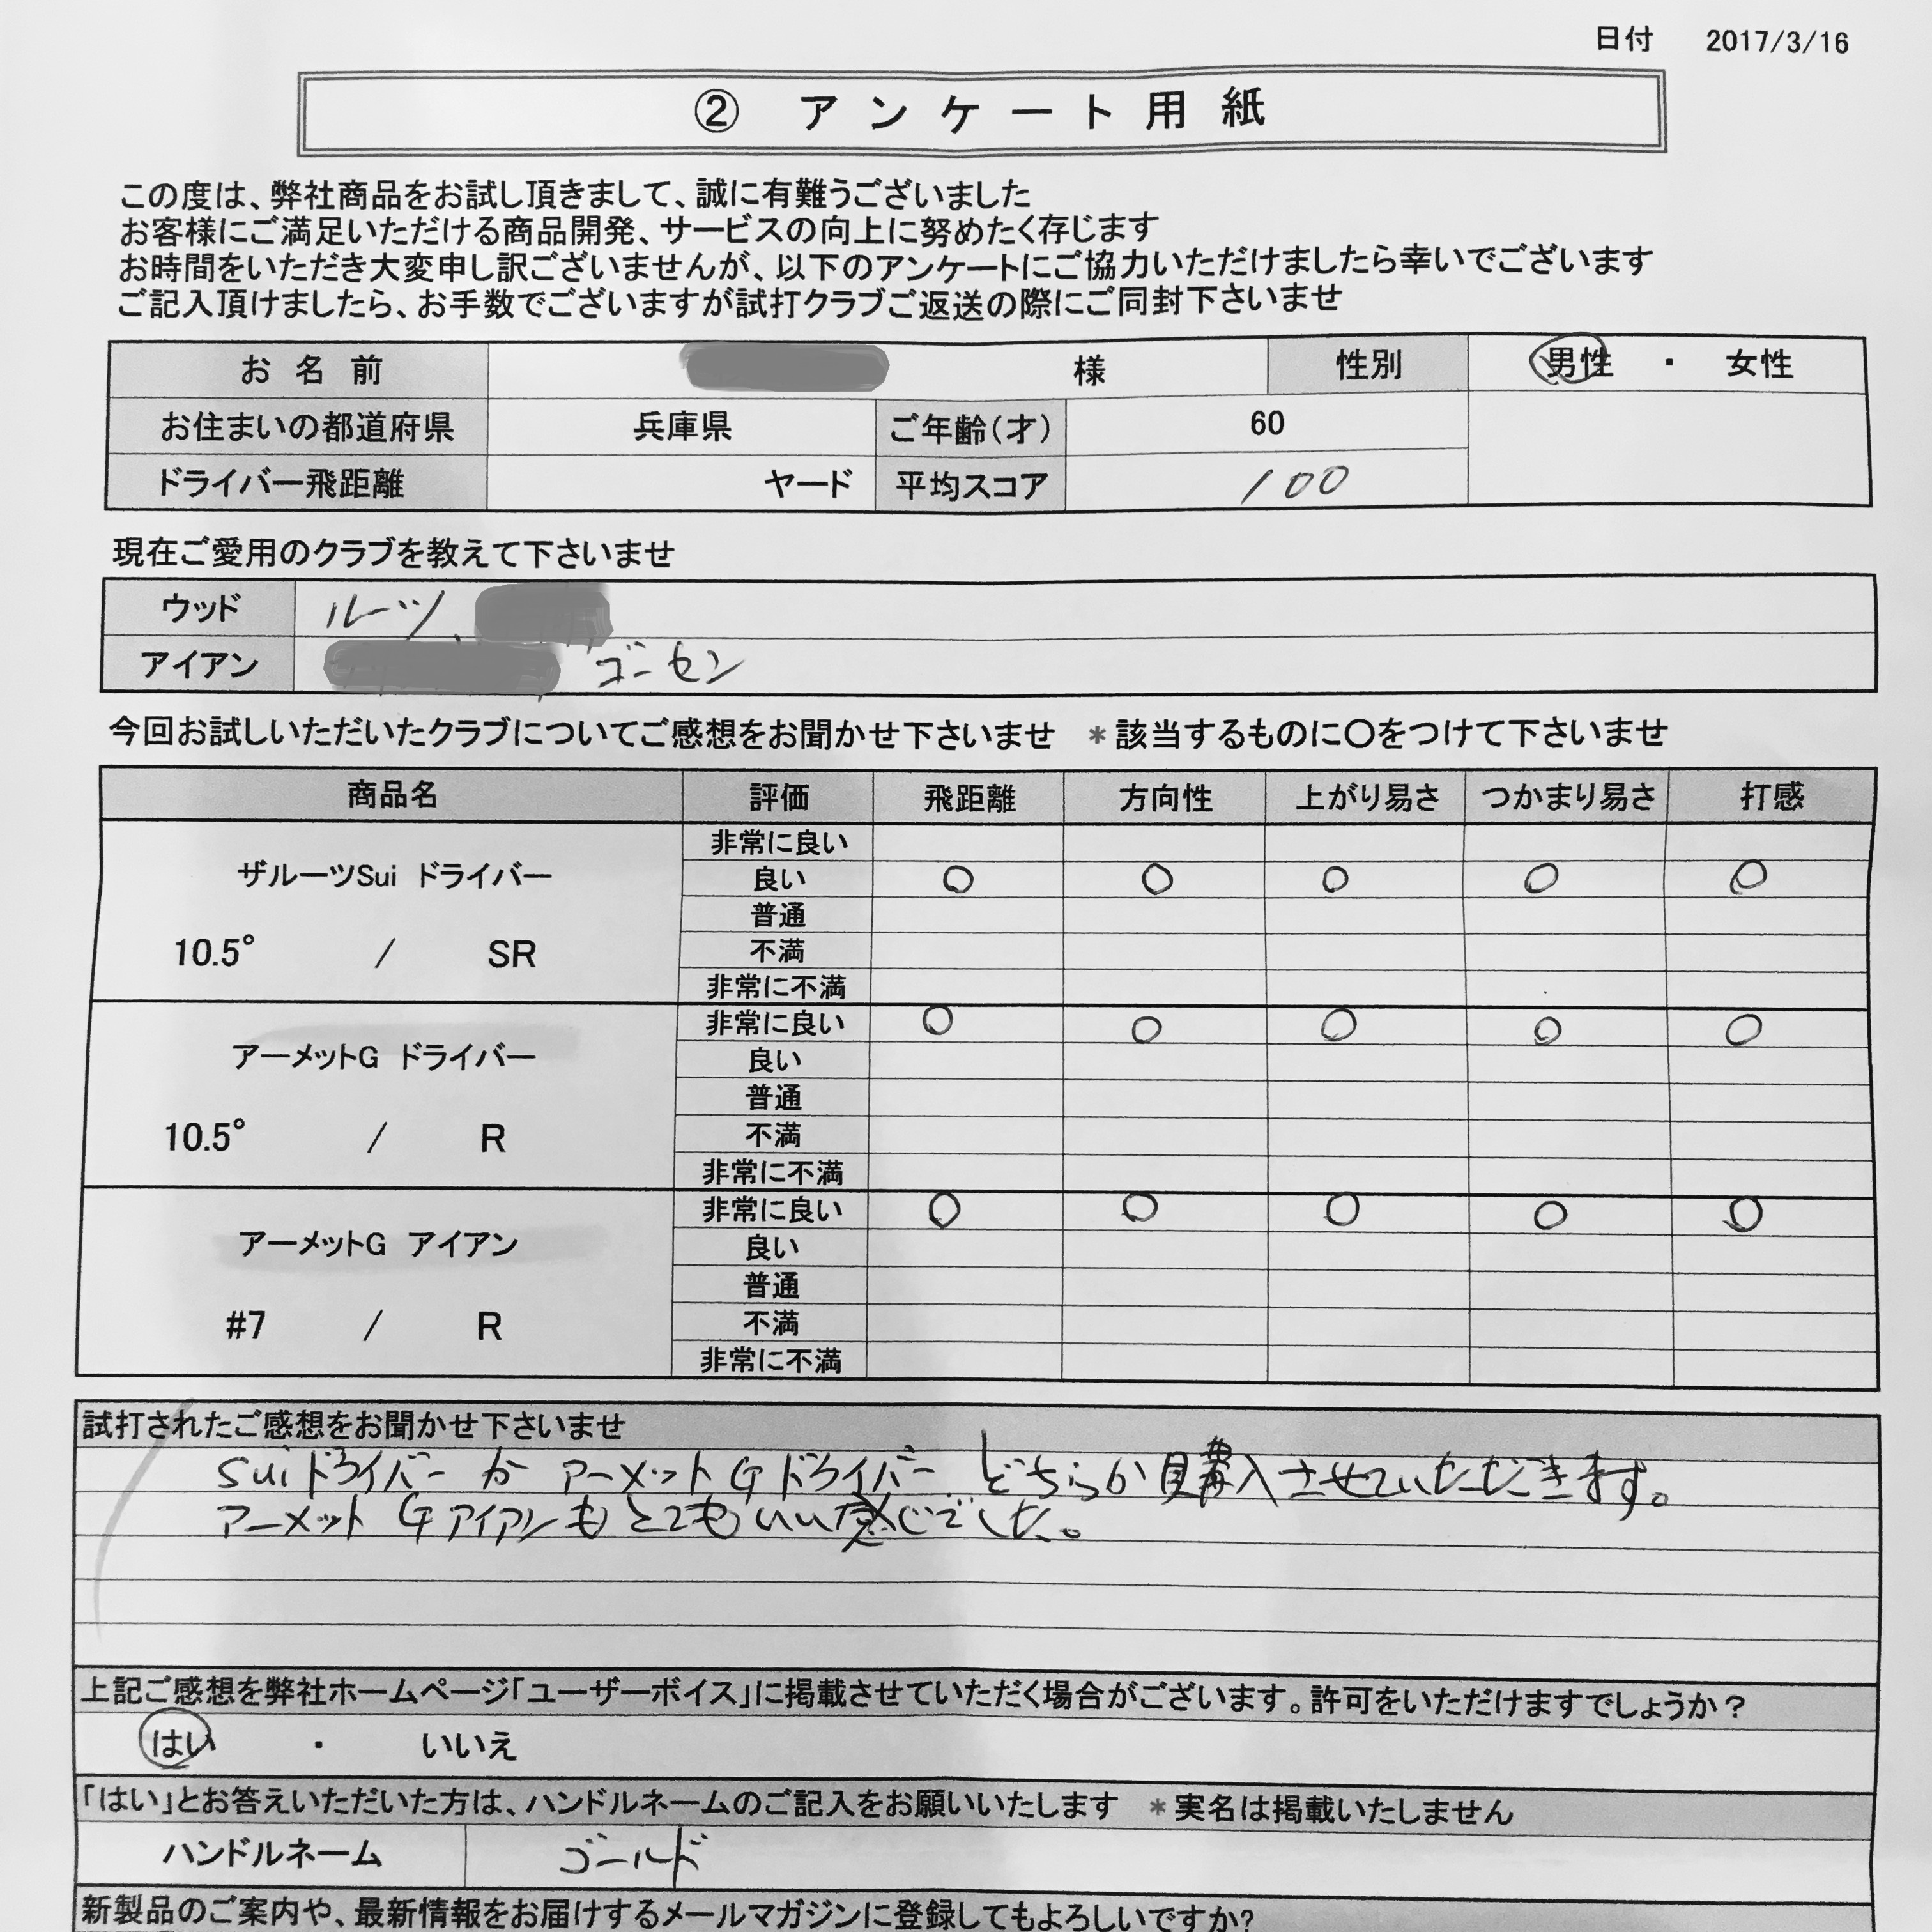 日付 2017/3/16
② アンケート用紙
この度は、弊社商品をお試し頂きまして、誠に有難うございました
お客様にご満足いただける商品開発、サービスの向上に努めたく存じます
お時間をいただき大変申し訳ございませんが、以下のアンケートにご協力いただけましたら幸いでございます
ご記入頂けましたら、お手数でございますが試打クラブご返送の際にご同封下さいませ
お名前 様 性別 男性 ・ 女性
お住まいの都道府県 兵庫県 ご年齢(才) 60
ドライバー飛距離 ヤード 平均スコア 100
現在ご愛用のクラブを教えて下さいませ
ウッド ルーツ、
アイアン ゴーセン
今回お試しいただいたクラブについてご感想をお聞かせ下さいませ *該当するものに〇をつけて下さいませ
商品名 評価 飛距離 方向性 上がり易さ つかまり易さ 打感
ザルーツSui ドライバー
10.5° / SR
非常に良い
良い ○ ○ ○ ○ ○
普通
不満
非常に不満
アーメットG ドライバー
10.5° / R
非常に良い ○ ○ ○ ○ ○
良い
普通
不満
非常に不満
アーメットG アイアン
#7 / R
非常に良い ○ ○ ○ ○ ○
良い
普通
不満
非常に不満
試打されたご感想をお聞かせ下さいませ
suiドライバーかアーメットGドライバーどちらか購入させていただきます。
アーメットGアイアンもとてもいい感じでした。
上記ご感想を弊社ホームページ「ユーザーボイス」に掲載させていただく場合がございます。許可をいただけますでしょうか？
はい ・ いいえ
「はい」とお答えいただいた方は、ハンドルネームのご記入をお願いいたします *実名は掲載いたしません
ハンドルネーム ゴールド
新製品のご案内や、最新情報をお届けするメールマガジンに登録してもよろしいですか?